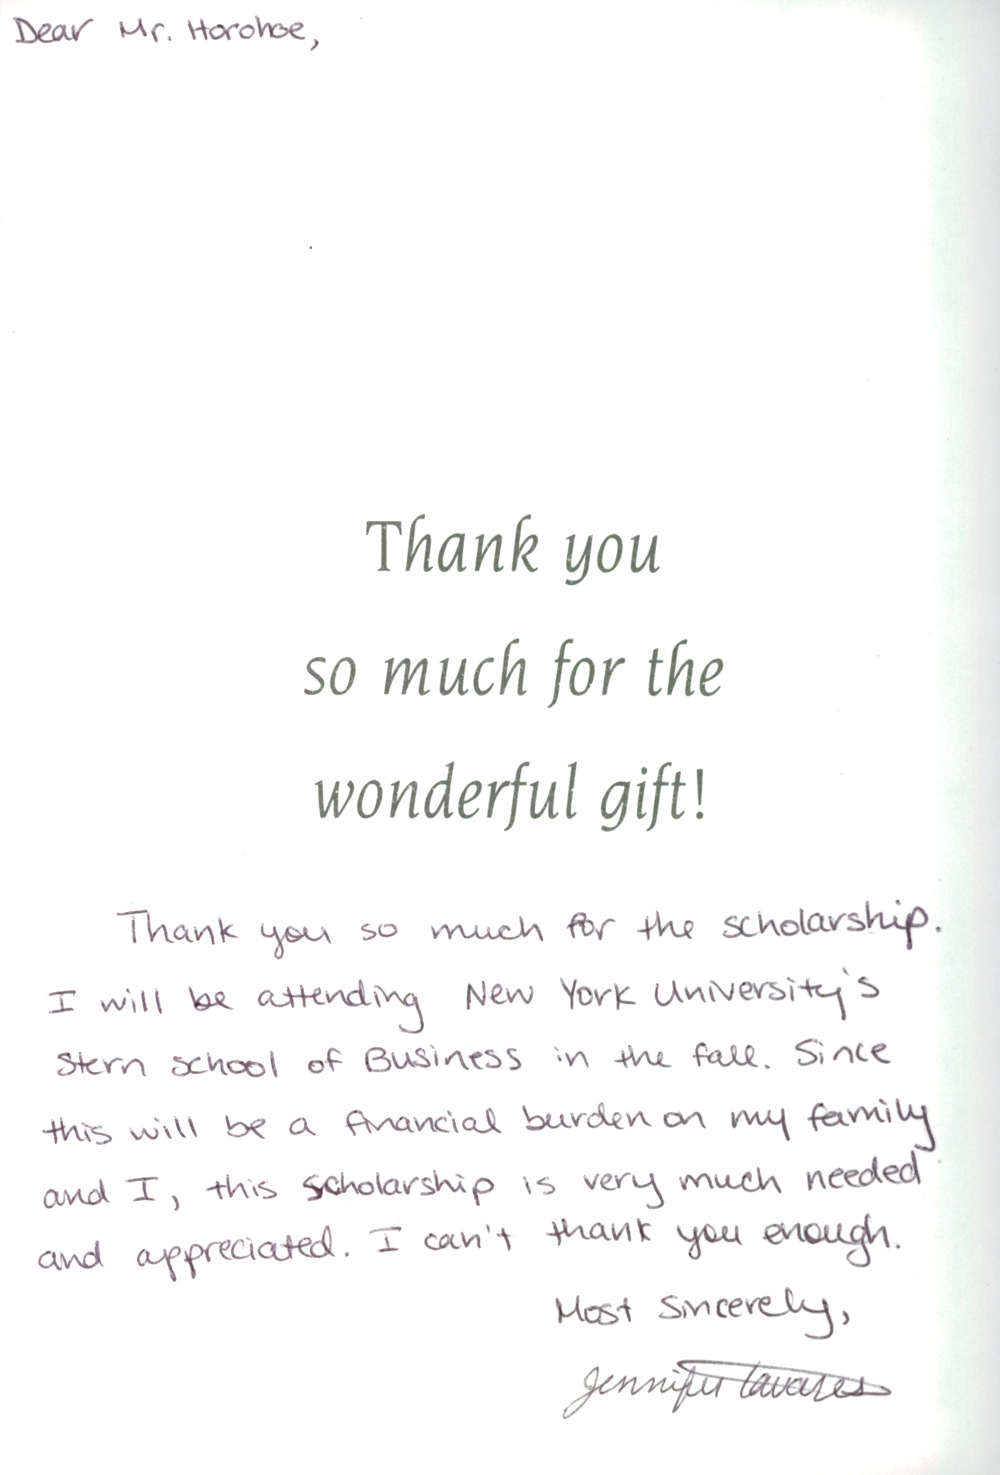 Dear Mr. Horohoe,
Thank you
so much for the
wonderful gift!
Thank you so much for the scholarship.
I will be attending New York University's
Stern School of Business in the fall. Since
this will be a financial burden on my family
and I, this scholarship is very much needed
and appreciated. I can't thank you enough.
Most Sincerely,
Jennifer Tavares